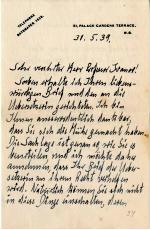 TELEPHONE
BAYSWATER
31, PALACE GARDENS TERRACE,
W.8.
31.5.39.
Sehr verehrter Herr Professor
Soeben erhalte ich Ihren liebens-
würdigen Brief und den an die
gerichteten. Ich bin
Ihnen ausserordentlich dankbar,
dass Sie sich die Mühe gemacht haben.
Die Sachlage ist genau so wie Sie es
und ich möchte daher
annehmen, dass Ihr Brief die
Ihrem Rat
Natürlich können Sie sich nicht
in diese Dinge einschalten, denn